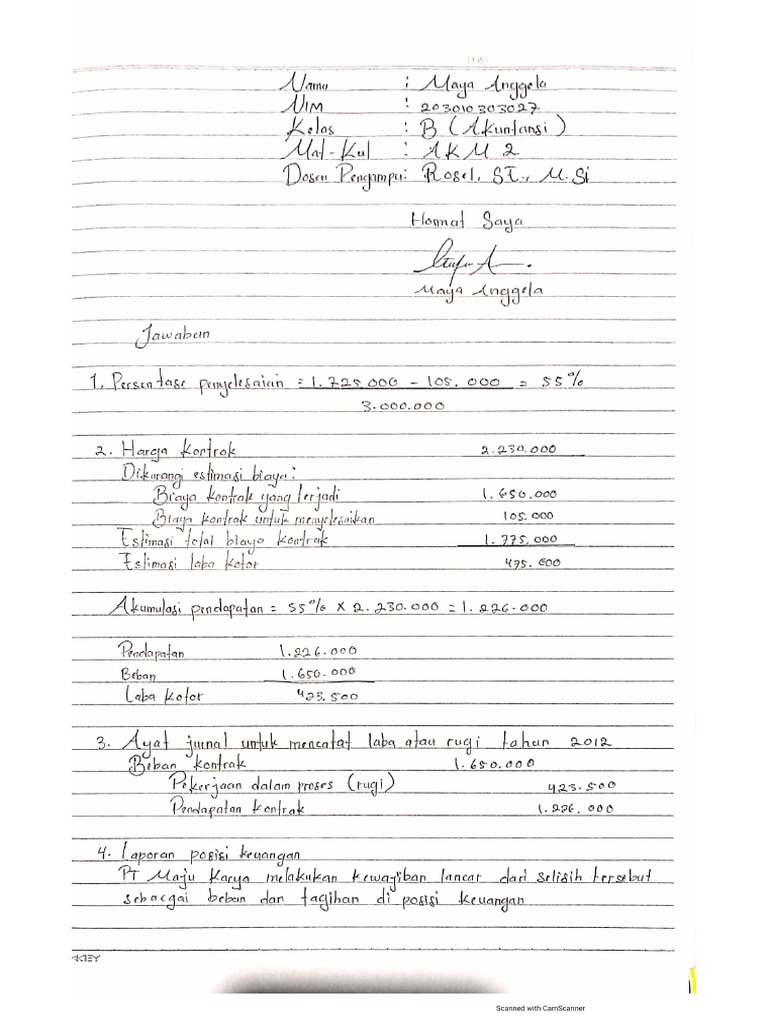 Nama : Maya Anggela
NIM : 203010303027
Kelas : B (Akuntansi)
Mat-Kul : AKM 2
Dosen Pengampu: Rosel, SE., M.Si
Hormat Saya
Maya Anggela
Jawaban
1. Persentase penyelesaian = 1.725.000 - 105.000 = 55%
3.000.000
2. Harga Kontrok 2.230.000
Dikurangi estimasi biaya:
Biaya kontrak yang terjadi 1.650.000
Biaya kontrak untuk menyelesaikan 105.000
Estimasi total biaya kontrak 1.775.000
Estimasi laba kotor 475.000
Akumulasi pendapatan = 55% x 2.230.000 = 1.226.000
Pendapatan 1.226.000
Beban 1.650.000
Laba kotor 423.500
3. Ayat jurnal untuk mencatat laba atau rugi tahun 2012
Beban kontrak 1.650.000
Pekerjaan dalam proses (rugi) 423.500
Pendapatan Kontrak 1.226.000
4. Laporan posisi keuangan
PT Maju Karya melakukan kewajiban lancar dari selisih tersebut
sebacgai beban dan tagihan di posisi keuangan
Scanned with CamScanner